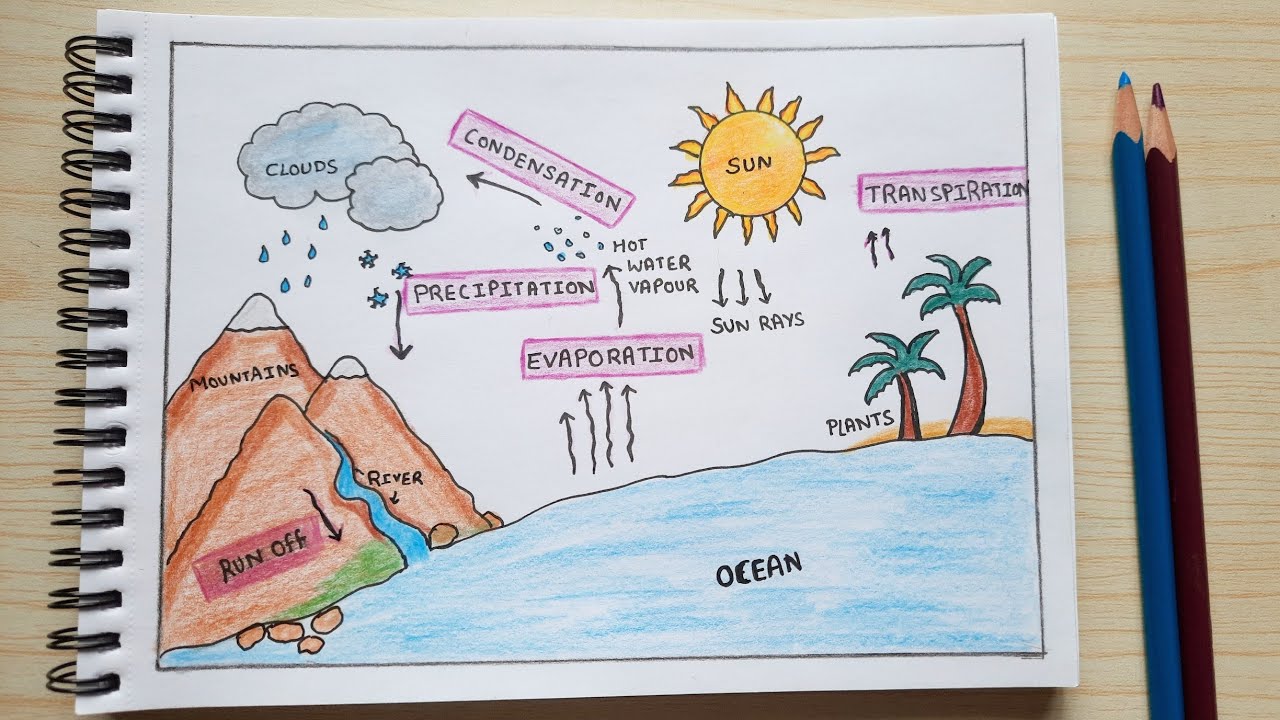 CLOUDS
CONDENSATION
SUN
TRANSPIRATION
HOT
WATER
VAPOUR
PRECIPITATION
SUN RAYS
EVAPORATION
MOUNTAINS
PLANTS
RIVER
RUN Off
OCEAN